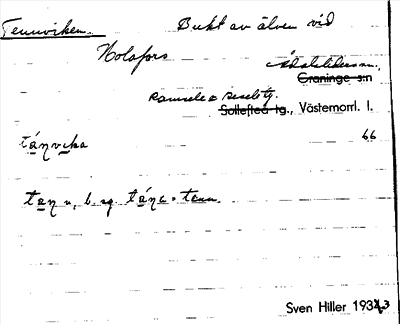 Tennviken. Bukt av älven vid
Holafors Ådalsliden sn.
Graninge s:n
Ramsele o Resele tg.
Sollefteå tg., Västernorrl. l.
tánvıka 66
tan n, b. sg. tánə = tenn.
Sven Hiller 1943